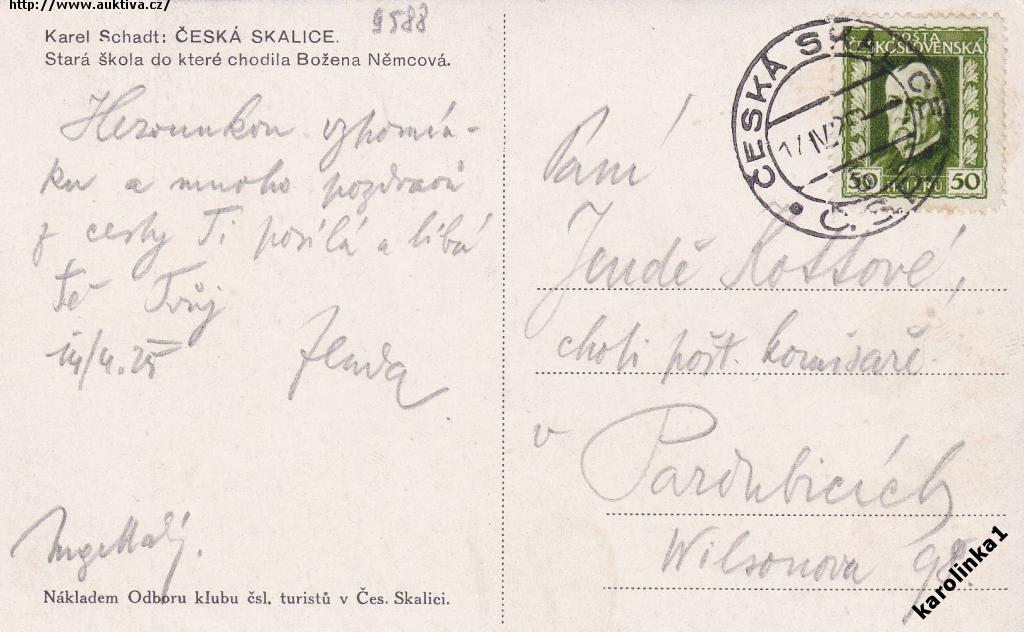 http://www.auktiva.cz/
9588
Karel Schadt: ČESKÁ SKALICE.
Stará škola do které chodila Božena Němcová.
vzpomín-
ku a mnoho pozdravů
z cesty Ti posílá a líbá
Tě Tvůj
Jenda
Nákladem Odboru klubu čsl. turistů v Čes. Skalici.
ČESKÁ SKALICE
Č.S.
POŠTA
ČESKOSLOVENSKÁ
50 50
Paní
Jendě Kottové,
choti pošt. komisaře
v Pardubicích
Wilsonova 98.
karolinka1